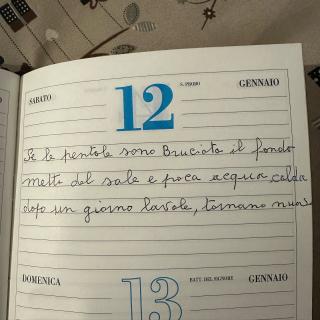 S. PROBO
SABATO 12 GENNAIO
Se le pentole sono Bruciate il fondo
metti del sale e poca acqua calda
dopo un giorno lavale, tornano nuove
DOMENICA 13 BATT. DEL SIGNORE GENNAIO